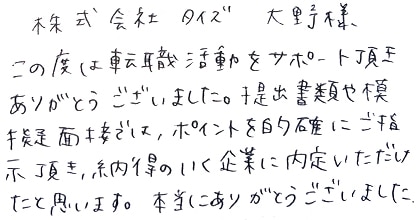 株式会社 タイズ 大野様
この度は転職活動をサポート頂き
ありがとうございました。提出書類や模
擬面接では、ポイントを的確にご指
示頂き、納得のいく企業に内定いただけ
たと思います。本当にありがとうございました。